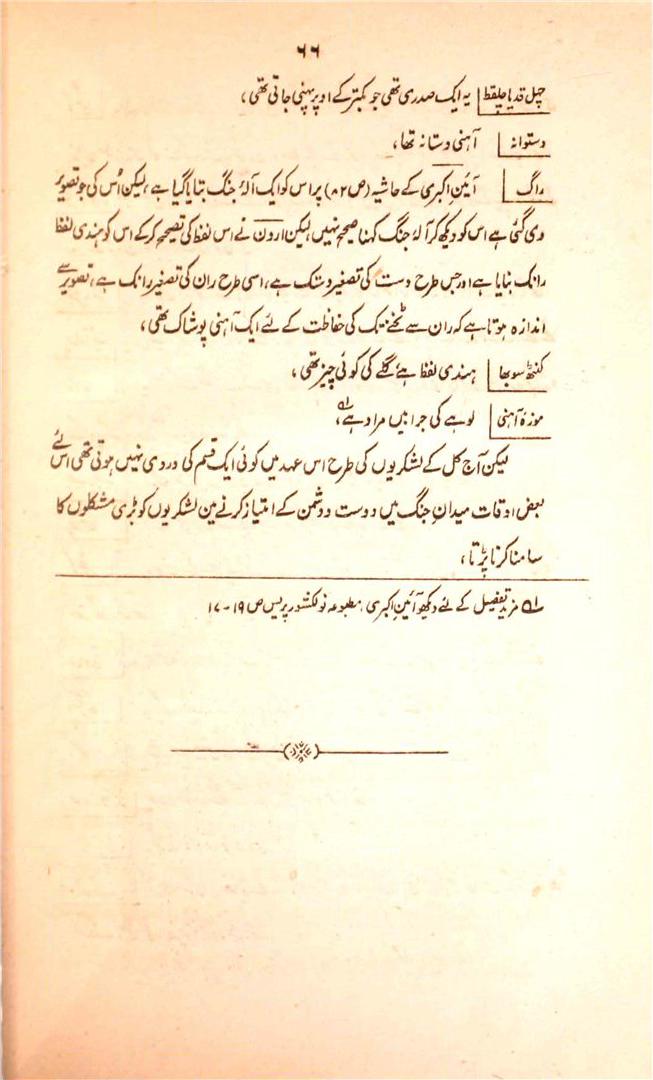 ۶۶
چہل قد یا چلیقط | یہ ایک صدری تھی جو بکتر کے اوپر پہنی جاتی تھی،
دستوانہ | آہنی دستانہ تھا،
راگ | آئین اکبری کے حاشیہ (ص ۸۲) پر اس کو ایک آلۂ جنگ بتایا گیا ہے، لیکن اُس کی جو تصویر
دی گئی ہے اس کو دیکھ کر آلۂ جنگ کہنا صحیح نہیں لیکن ارون نے اس لفظ کی تصحیح کر کے اس کو ہندی لفظ
رانک بتایا ہے اور جس طرح دست کی تصغیر دستک ہے، اسی طرح ران کی تصغیر رانک ہے، تصویر سے
اندازہ ہوتا ہے کہ ران سے ٹخنے تک کی حفاظت کے لئے ایک آہنی پوشاک تھی،
کنٹھ سوبھا | ہندی لفظ ہے گلے کی کوئی چیز تھی،
موزۂ آہنی | لوہے کی جرابیں مراد ہے،۱؎
لیکن آج کل کے لشکریوں کی طرح اس عہد میں کوئی ایک قسم کی وردی نہیں ہوتی تھی اس لئے
بعض اوقات میدانِ جنگ میں دوست و دشمن کے امتیاز کرنے مین لشکریوں کو بڑی مشکلوں کا
سامنا کرنا پڑتا،
۱؎ مزید تفصیل کے لئے دیکھو آئین اکبری، مطبوعہ نولکشور پریس ص ۱۹-۱۷